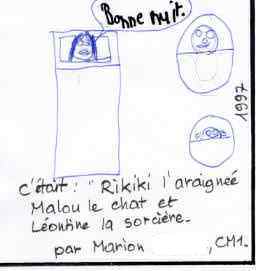 Bonne nuit.
1997
c'était : "Rikiki l'araignée
Malou le chat et
Léontine la sorcière.
par Marion , CM1.